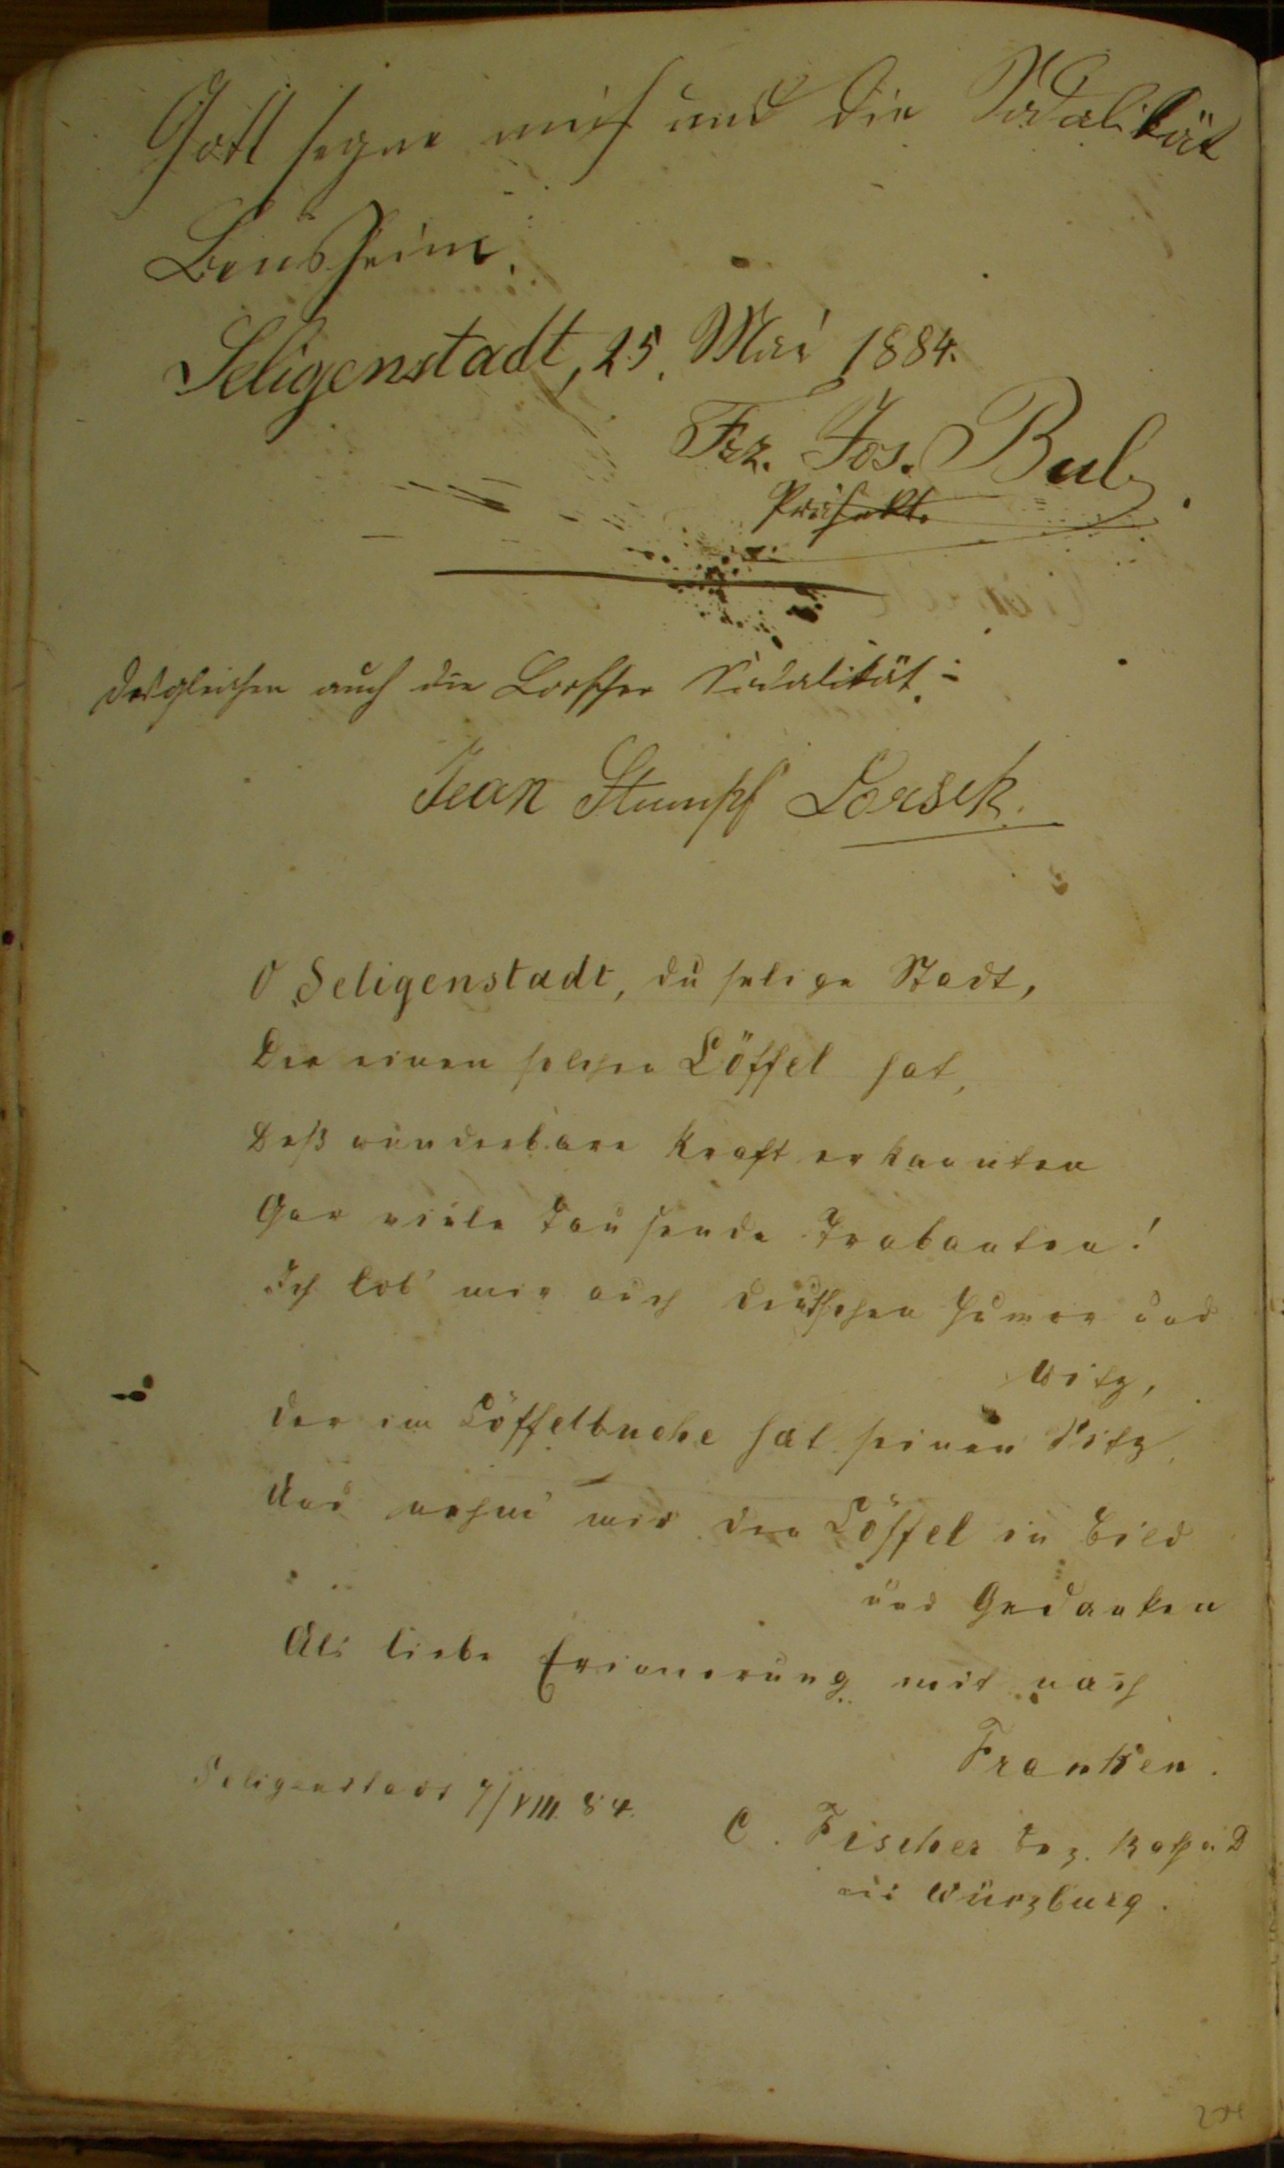 Gott segne mich und die Sodalität
Bensheim.
Seligenstadt, 25. Mai 1884.
Frz. Jos. Bul
Präfekt.
desgleichen auch die Lorscher Sodalität.
Jean Stumpf Lorsch.
O Seligenstadt, du selige Stadt,
Die einen solchen Löffel hat,
Deß wunderbare Kraft erkannten
Gar viele tausende Trabanten!
Ich lob' mir auch deutschen Humor und
Witz,
Der im Löffelbuche hat seinen Sitz,
Und nehm' mir den Löffel in Bild
und Gedanken
Als liebe Erinnerung mit nach
Franken.
Seligenstadt 7/VIII. 84.
C. Fischer Bez.
aus Würzburg.